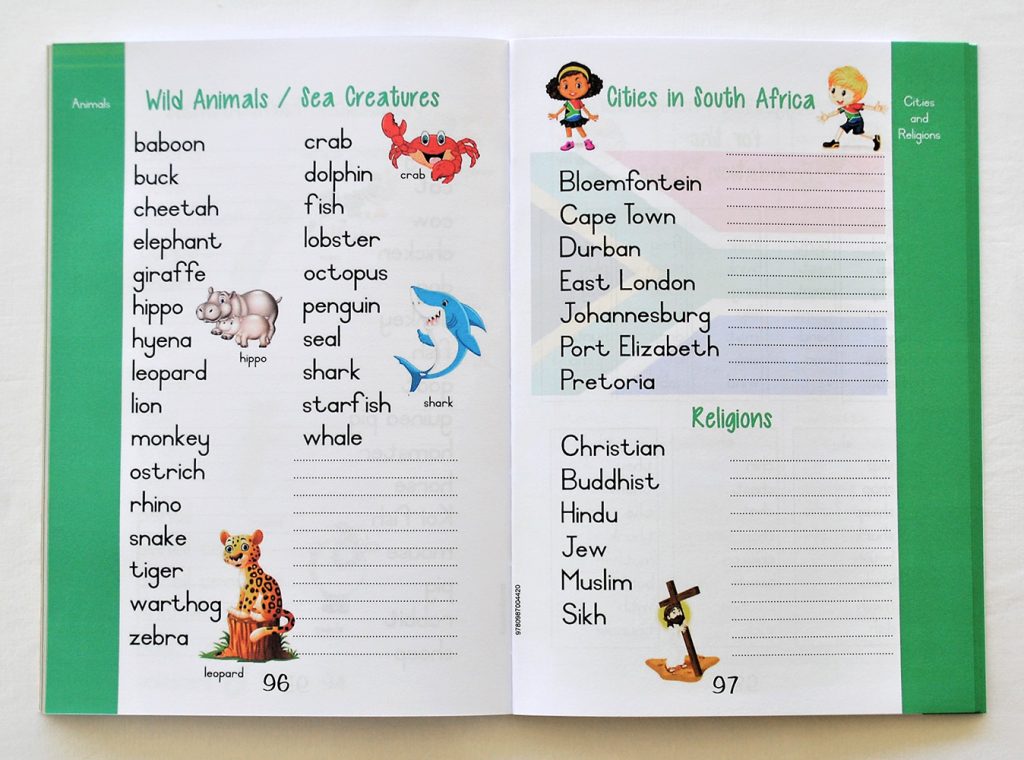 Animals
Wild Animals / Sea Creatures
baboon
buck
cheetah
elephant
giraffe
hippo
hyena
leopard
lion
monkey
ostrich
rhino
snake
tiger
warthog
zebra
crab
dolphin
fish
lobster
octopus
penguin
seal
shark
starfish
whale
crab
hippo
shark
leopard
96
Cities in South Africa
Bloemfontein
Cape Town
Durban
East London
Johannesburg
Port Elizabeth
Pretoria
Religions
Christian
Buddhist
Hindu
Jew
Muslim
Sikh
9780987004420
97
Cities
and
Religions